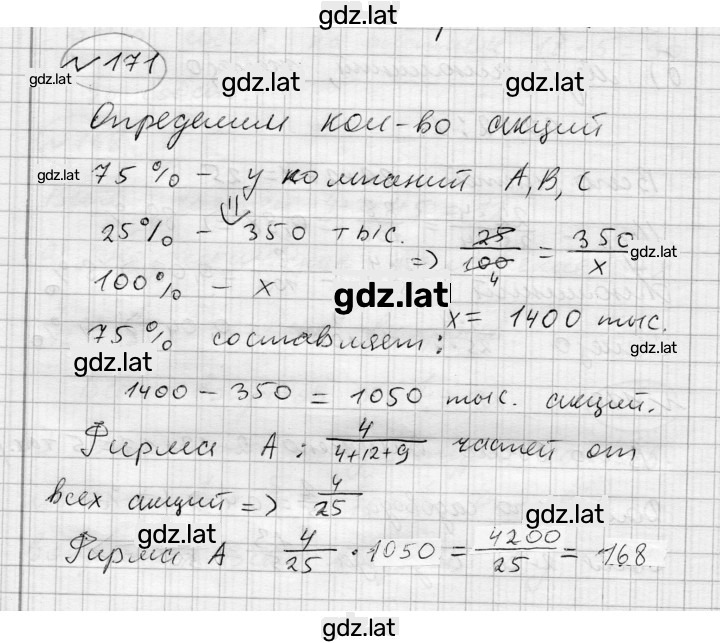 gdz.lat
№ 171
gdz.lat gdz.lat gdz.lat
Определим кол-во акций
gdz.lat 75% – у компаний A, B, C
25% – 350 тыс. => 25/100 = 350/x gdz.lat
4
100% – x gdz.lat
x = 1400 тыс.
75% составляет: gdz.lat
gdz.lat
1400 – 350 = 1050 тыс. акций.
Фирма A: 4/(4+12+9) частей от
всех акций => 4/25
gdz.lat gdz.lat
Фирма A 4/25 · 1050 = 4200/25 = 168.
gdz.lat